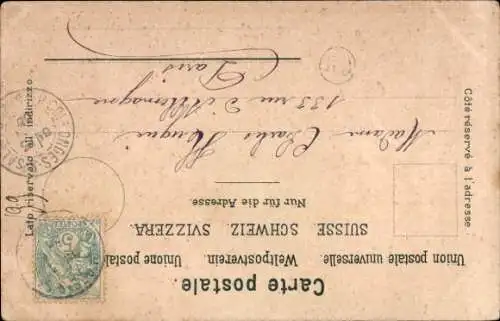 Carte postale.
Union postale universelle. Weltpostverein. Unione postale
SUISSE. SCHWEIZ. SVIZZERA.
Nur für die Adresse.
Côté réservé à l'adresse.
Lato riservato all' indirizzo.
Madame
133 rue d'Allemagne
Paris